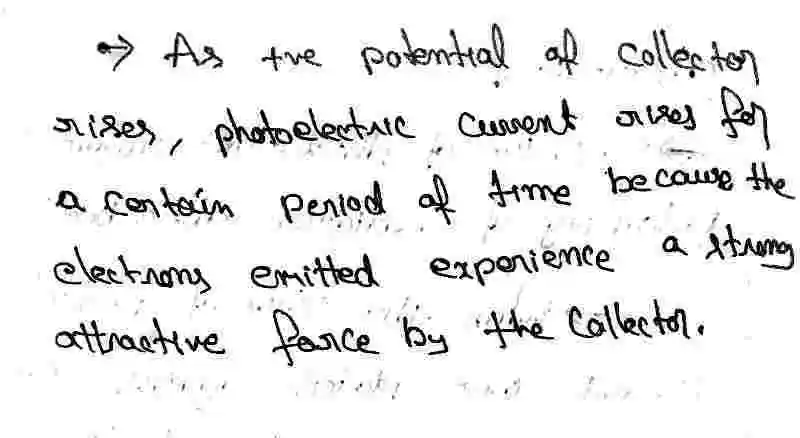 → As +ve potential of collector
rises, photoelectric current rises for
a certain period of time because the
electrons emitted experience a strong
attractive force by the collector.